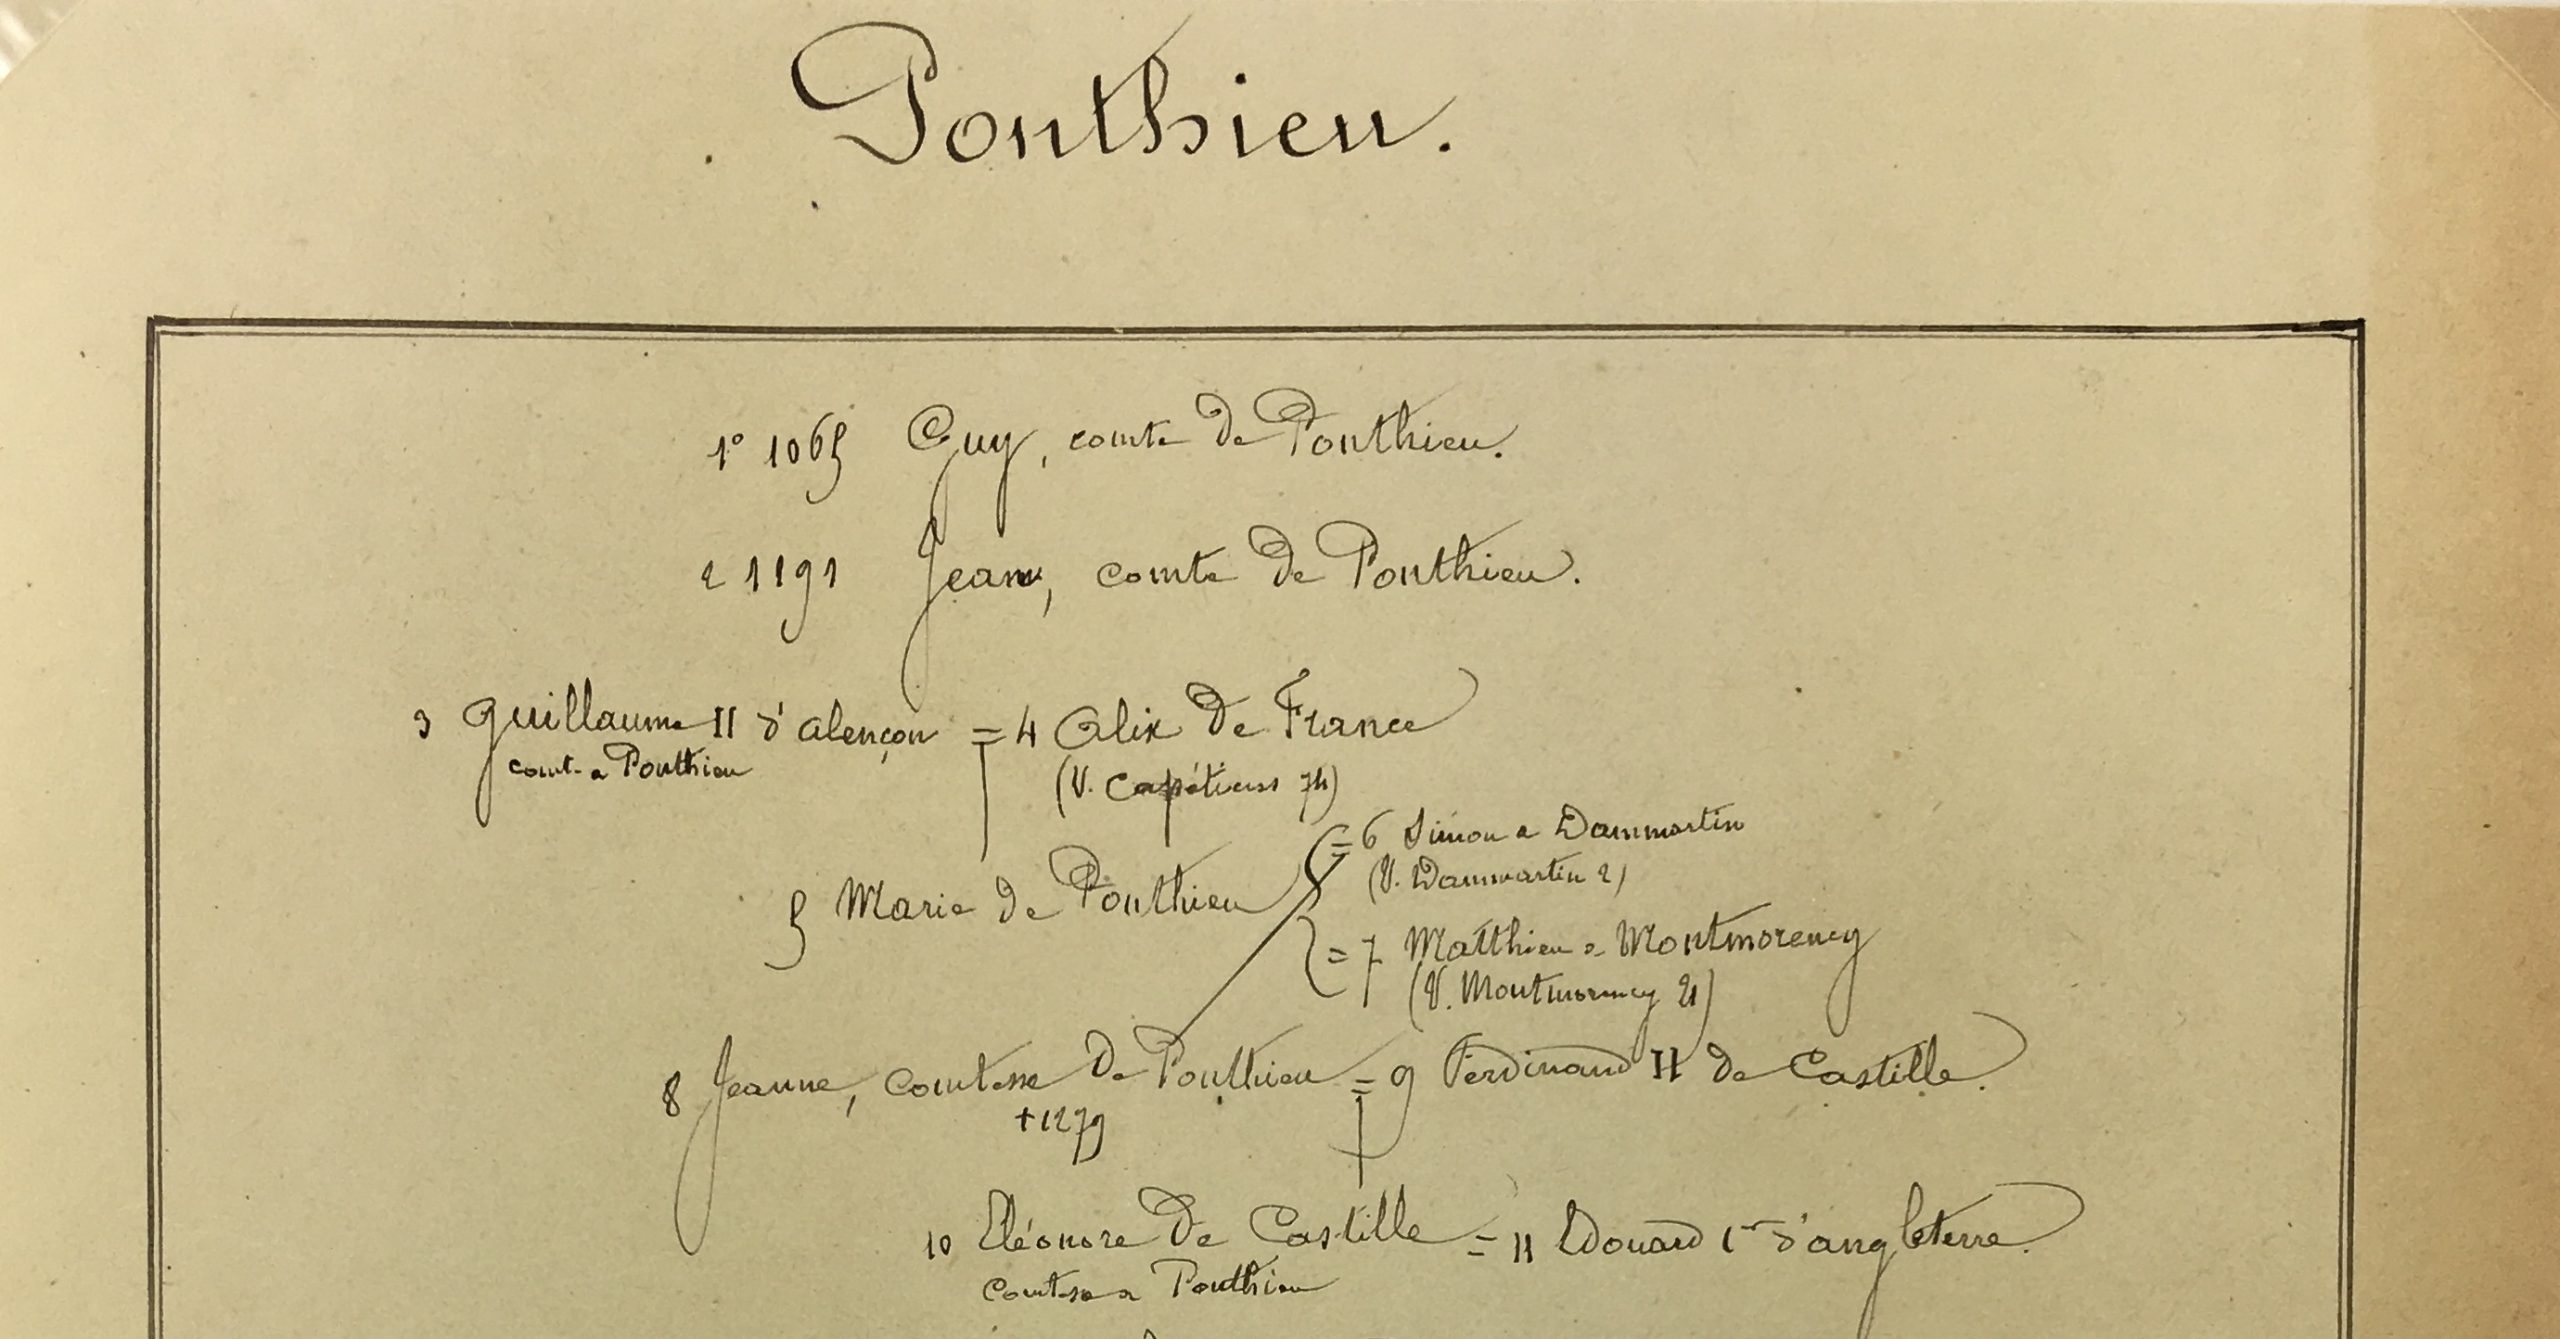 Ponthieu.
1° 1065 Guy, comte de Ponthieu.
2 1191 Jean, comte de Ponthieu.
3 Guillaume II d'alençon = 4 Alix de France
comte de Ponthieu (V. Capétiens 74)
= 6 Simon de Dammartin
(V. Dammartin 2)
5 Marie de Ponthieu
= 7 Matthieu de Montmorency
(V. Montmorency 21)
8 Jeanne, comtesse de Ponthieu = 9 Ferdinand II de Castille.
+ 1279
10 Eléonore de Castille = 11 Edouard 1er d'angleterre.
Comtesse de Ponthieu